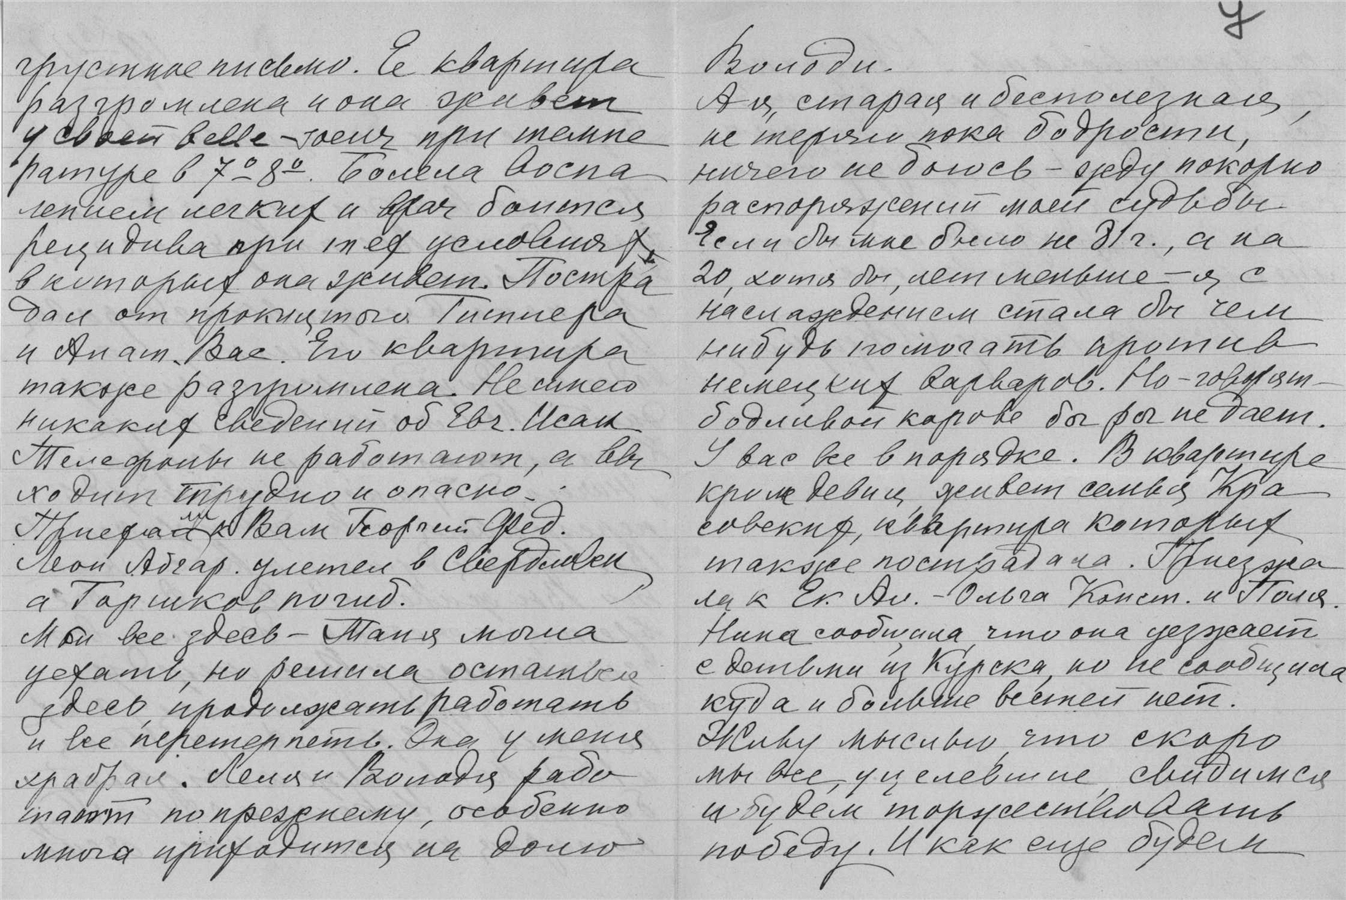 У
грустное письмо. Ее квартира
разгромлена и она живет
у своей belle-soeur при темпе
ратуре в 7°-8°. Болела воспа
лением легких и врач боится
рецидива при тех условиях,
в которых она живет. Постра
дал от проклятого Гитлера
и Анат. Вас. Его квартира
также разгромлена. Не имею
никаких сведений об Евг. Исак
Телефоны не работают, а вы
ходить трудно и опасно.
Приехал ли к Вам Георгий Фед.
Леон Абгар. улетел в Свердловск,
а Горшков погиб.
Мы все здесь – Таня могла
уехать, но решила остаться
здесь, продолжать работать
и все перетерпеть. Она у меня
храбрая. Леля и Володя рабо
тают по прежнему, особенно
много приходится на долю
Володи.
А я, старая и бесполезная,
не теряю пока бодрости,
ничего не боюсь – жду покорно
распоряжений моей судьбы.
Если бы мне было не 81 г., а на
20, хотя бы, лет меньше – я с
наслаждением стала бы чем
нибудь помогать против
немецких варваров. Но – говорят –
бодливой корове бы рог не дает.
У вас все в порядке. В квартире
кроме девиц, живет семья Кра
совских, квартира которых
также пострадала. Приезжа
ла к Ек. Ал. – Ольга Конст. и Поля.
Нина сообщила, что она уезжает
с детьми из Курска, но не сообщила
куда и больше вестей нет.
Живу мыслью, что скоро
мы все, уцелевшие, свидимся
и будем торжествовать
победу. И как еще будем